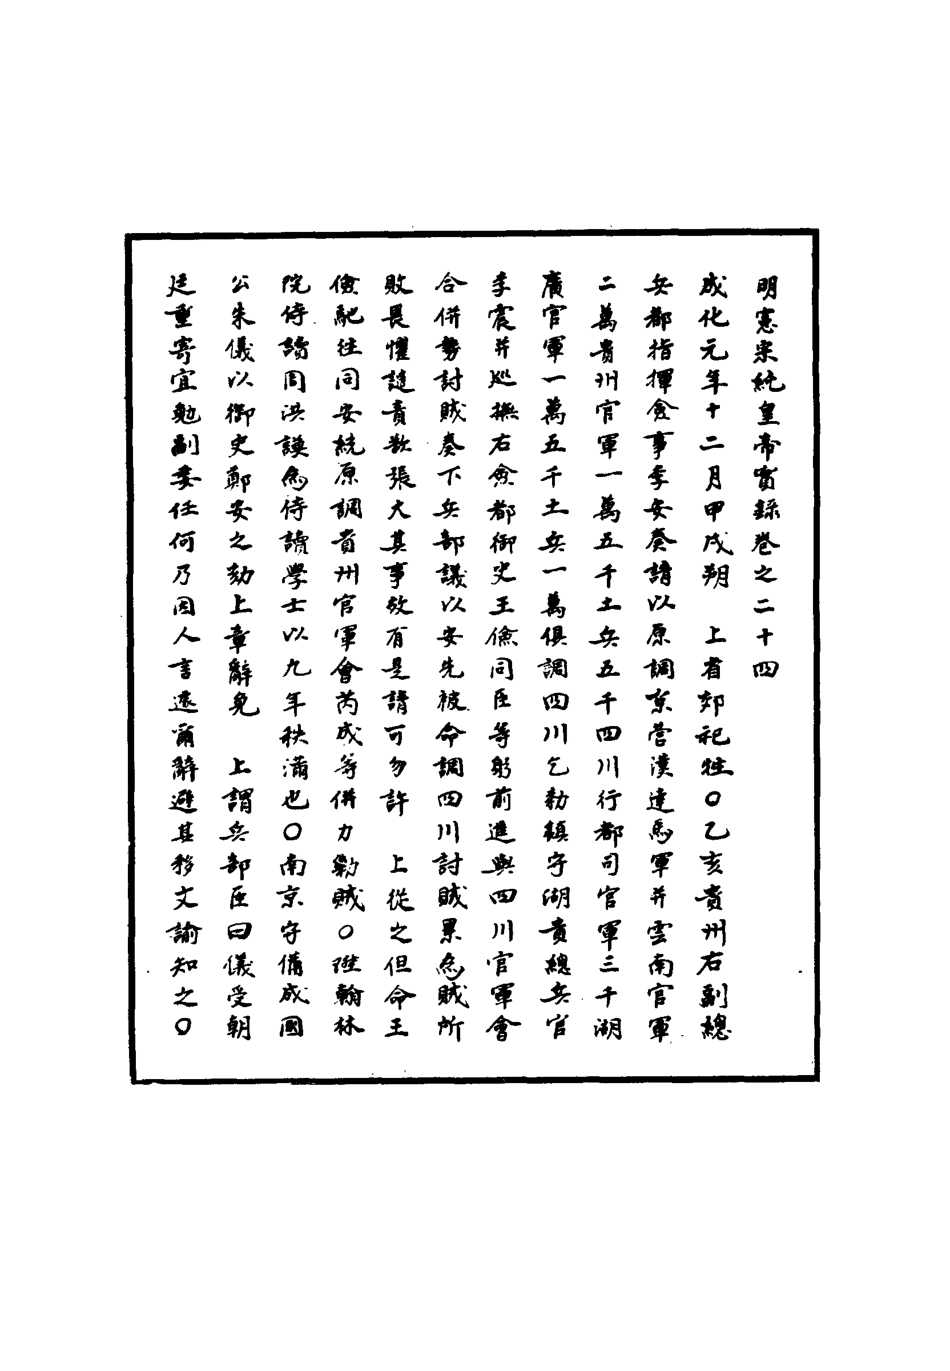 明憲宗純皇帝實錄卷之二十四
成化元年十二月甲戌朔　上省郊祀牲○乙亥貴州右副總
兵都指揮僉事李安奏請以原調京營漢達馬軍并雲南官軍
二萬貴州官軍一萬五千土兵五千四川行都司官軍三千湖
廣官軍一萬五千土兵一萬俱調四川乞勑鎮守湖貴總兵官
李震并巡撫右僉都御史王儉同臣等躬前進與四川官軍會
合併勢討賊奏下兵部議以安先被命調四川討賊累為賊所
敗畏懼譴責欲張大其事故有是請可勿許　上從之但命王
儉馳往同安統原調貴州官軍會芮成等併力勦賊○陞翰林
院侍讀周洪謨為侍讀學士以九年秩滿也○南京守備成國
公朱儀以御史鄭安之劾上章辭免　上謂兵部臣曰儀受朝
廷重寄宜勉副委任何乃因人言遽爾辭避其移文諭知之○